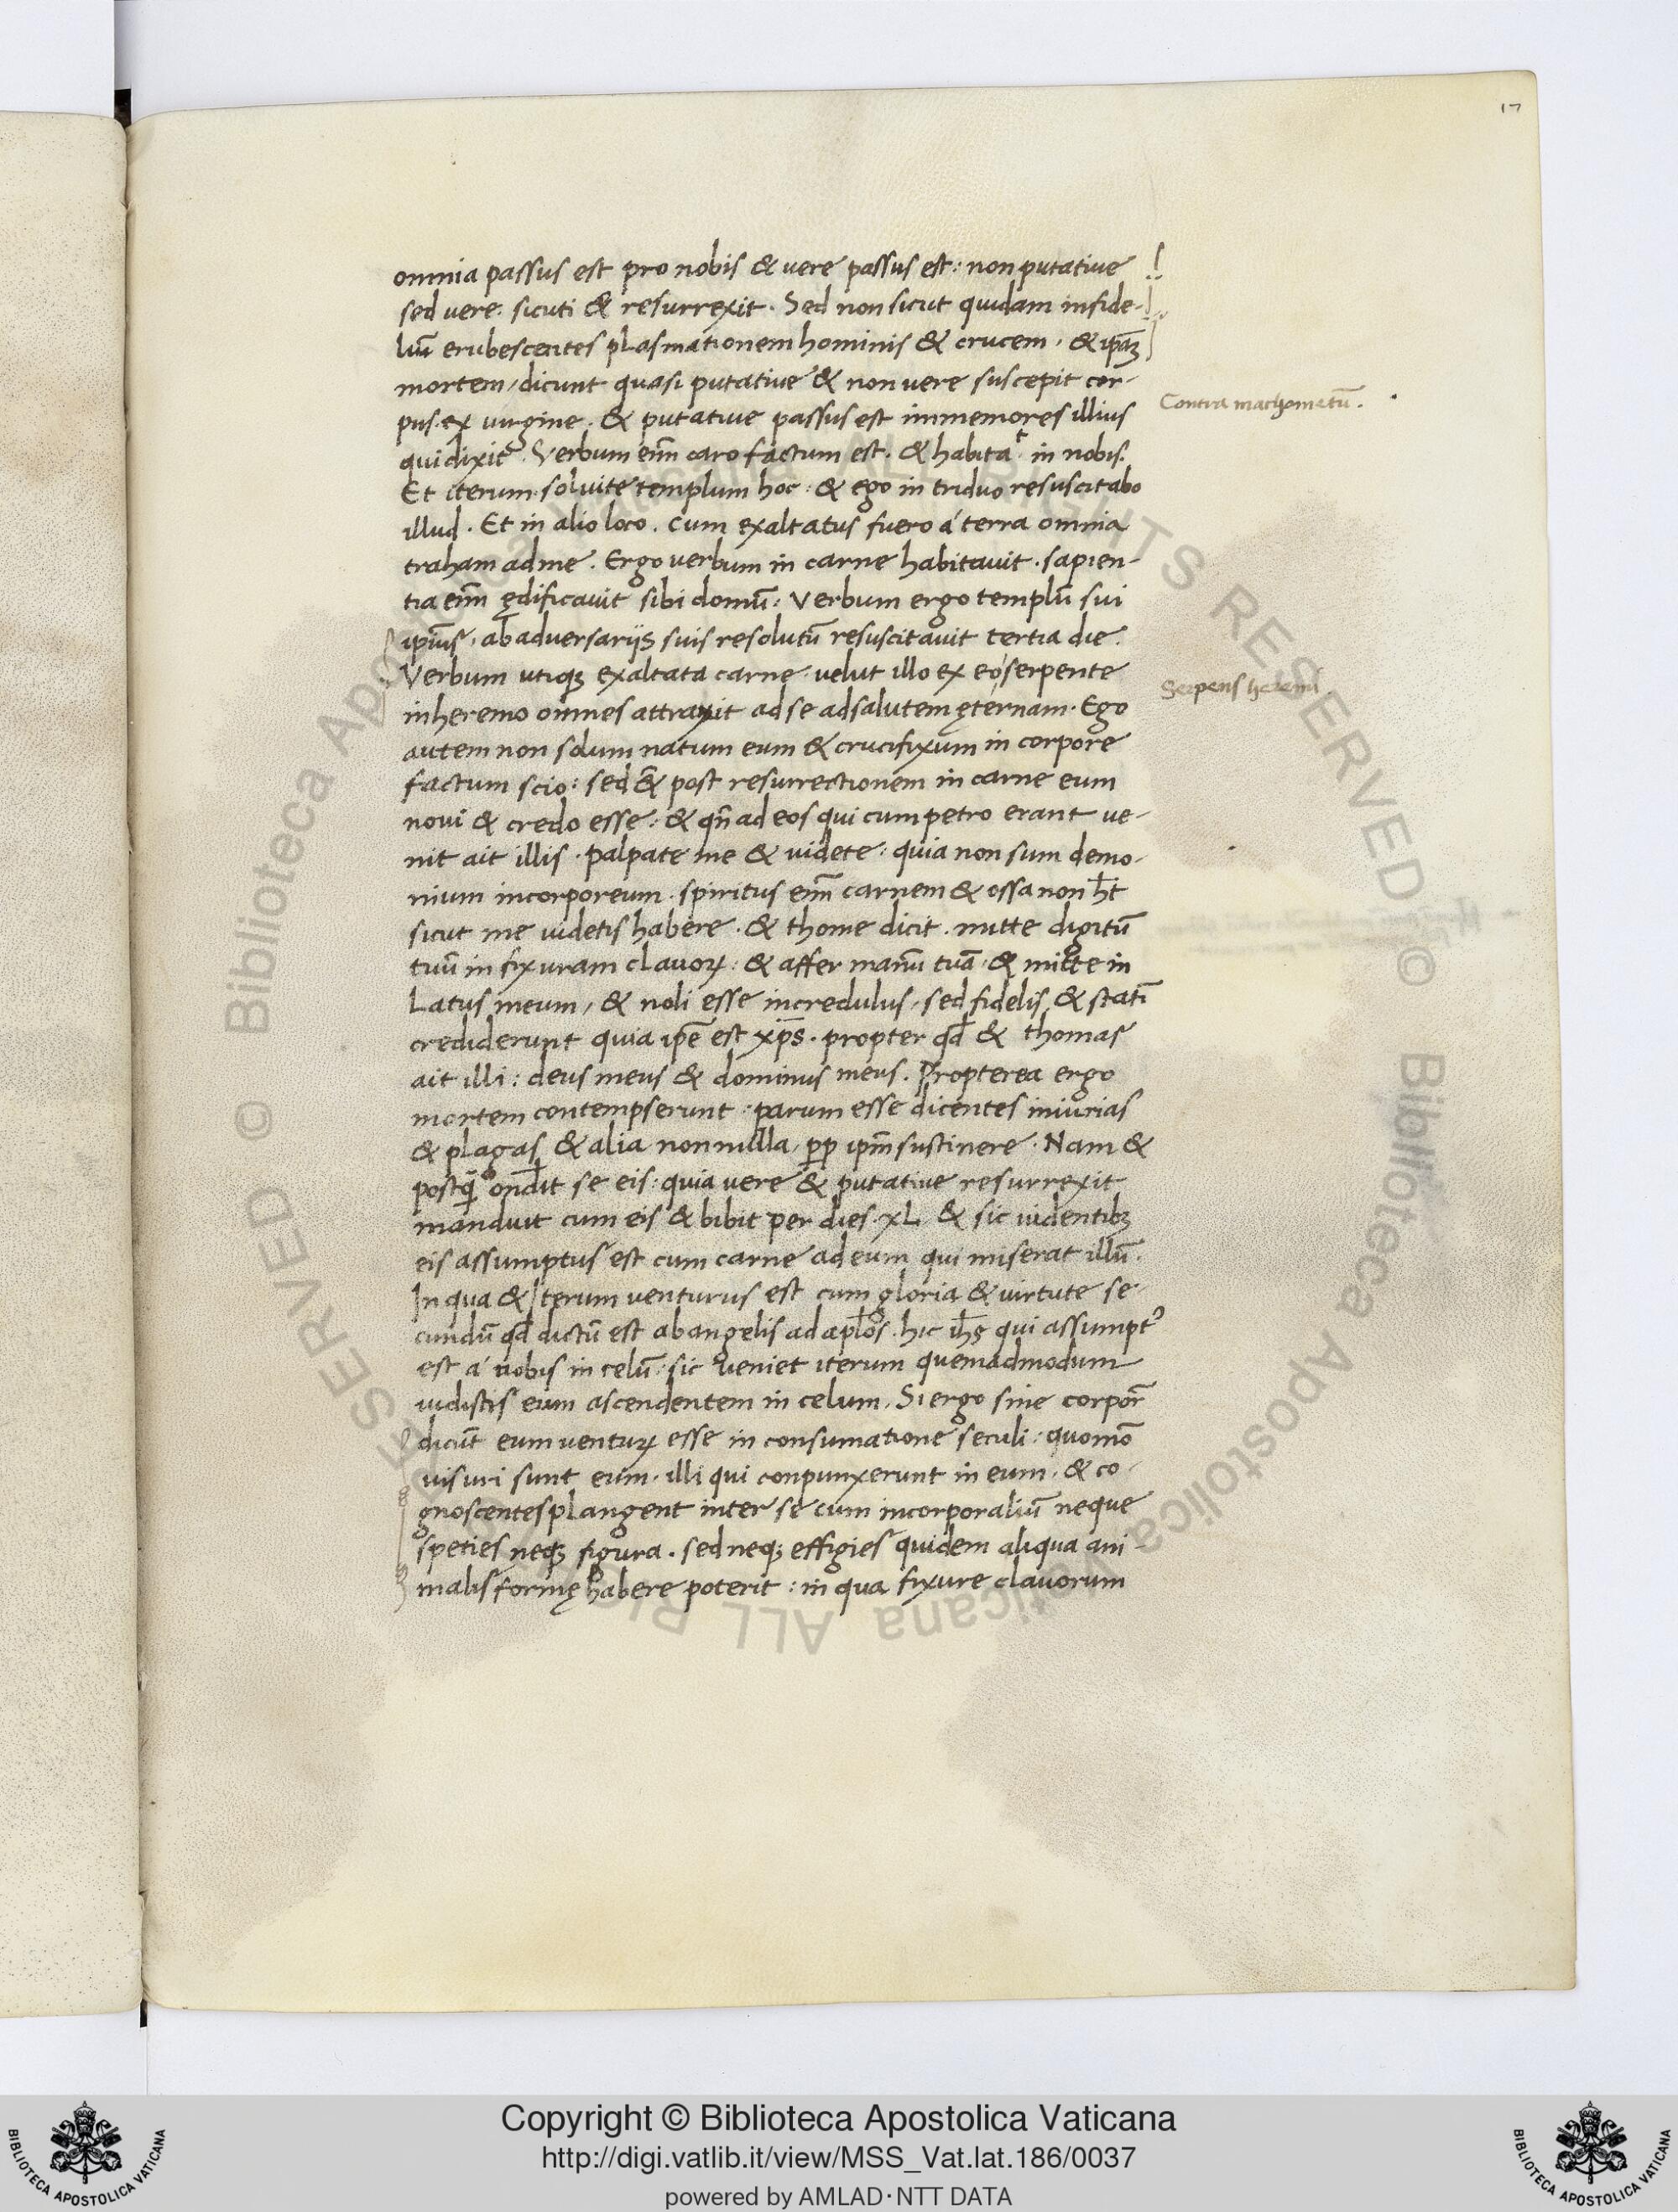 17
omnia passus est pro nobis & vere passus est: non putative
sed vere: sicuti & resurrexit. Sed non sicut quidam infide-
liū erubescentes plasmationem hominis & crucem. & ip̄aꝫ
mortem, dicunt quasi putative & non vere suscepit cor-
pus. ex virgine. & putative passus est immemores illius
Contra machometū.
qui dixit. Verbum eīm caro factum est. & habitat in nobis.
Et iterum. solvite templum hoc: & ego in triduo resuscitabo
illud. Et in alio loco. Cum exaltatus fuero á terra omnia
traham ad me. Ergo verbum in carne habitavit. sapien-
tia eīm ędificavit sibi domū: Verbum ergo templū sui
ip̄ius, ab adversariis suis resolutū resuscitavit tertia die.
Verbum utiqꝫ exaltata carne. velut illo ex eo serpente
Serpens heremi.
in heremo omnes attraxit ad se ad salutem ęternam. Ego
autem non solum natum eum & crucifixum in corpore
factum scio: sed & post resurrectionem in carne eum
novi & credo esse: & qn̄ ad eos qui cum petro erant ve-
nit ait illis. palpate me & videte: quia non sum demo-
nium incorporeum. spiritus eīm carnem & ossa non h̄t
sicut me videtis habere. & thome dicit. mitte digitū
tuū in fixuram clavoꝝ: & affer manū tuā. & mitte in
Latus meum, & noli esse incredulus, sed fidelis. & statī
crediderunt quia ip̄e est xp̄s. propter qd̄ & thomas
ait illi: deus meus & dominus meus. Propterea ergo
mortem contempserunt: parum esse dicentes iniurias
& plagas & alia nonnulla, pp̄ ip̄m sustinere. Nam &
postq̄ ond̄it se eis: quia vere & putative resurrexit
manduit cum eis & bibit per dies. xL. & sic videntibꝫ
eis assumptus est cum carne ad eum qui miserat illū.
In qua & Iterum venturus est cum gloria & virtute se-
cundū qd̄ dictū est ab angelis ad apl̄os. hic ih̄s qui assumptꝰ
est á vobis in celū: sic veniet iterum quemadmodum
vidistis eum ascendentem in celum. Si ergo sine corpor̄
dicūt eum ventuꝝ esse in consumatione seculi: quomō
visuri sunt eum. illi qui conpunxerunt in eum. & co-
gnoscentes plangent inter se cum incorporaliū neque
speties neqꝫ figura. sed neqꝫ effigies quidem aliqua ani-
malis formę habere poterit: in qua fixure clavorum
© Biblioteca Apostolica Vaticana ALL RIGHTS RESERVED
Copyright © Biblioteca Apostolica Vaticana
http://digi.vatlib.it/view/MSS_Vat.lat.186/0037
powered by AMLAD·NTT DATA
BIBLIOTECA APOSTOLICA VATICANA
BIBLIOTECA APOSTOLICA VATICANA